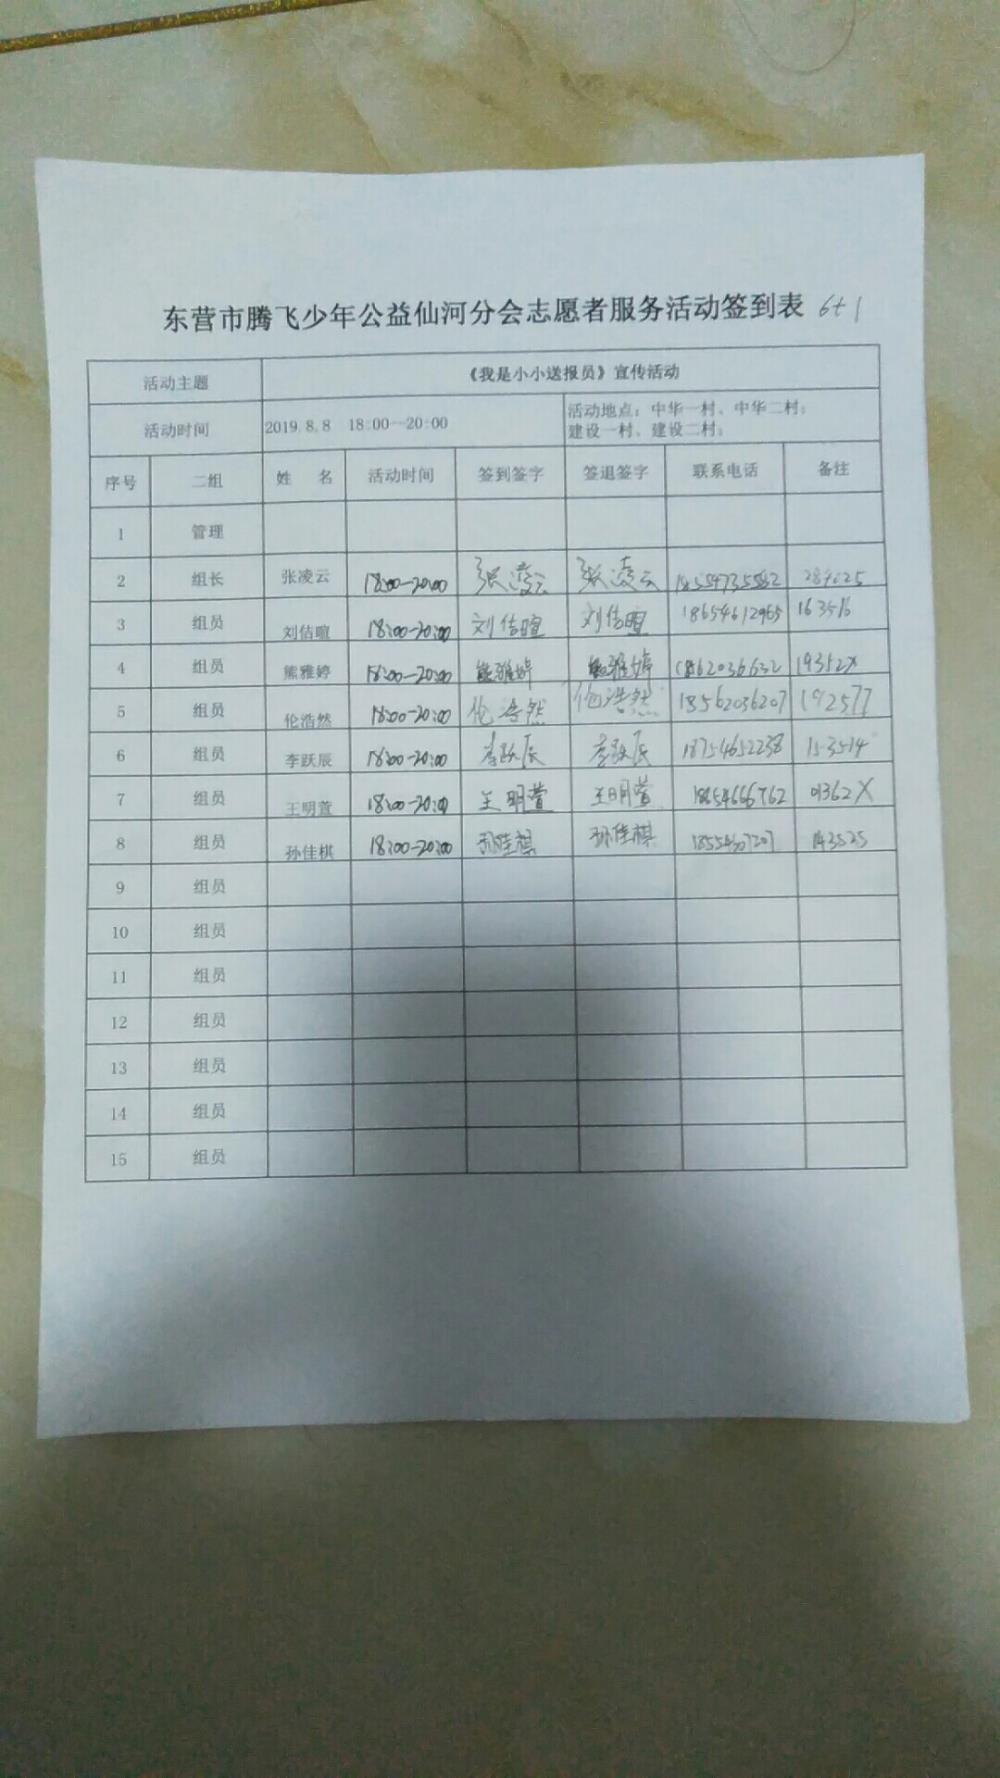 东营市腾飞少年公益仙河分会志愿者服务活动签到表 6+1
活动主题 《我是小小送报员》宣传活动
活动时间 2019.8.8 18:00--20:00 活动地点：中华一村、中华二村；
建设一村、建设二村；
序号 二组 姓 名 活动时间 签到签字 签退签字 联系电话 备注
1 管理
2 组长 张凌云 18:00-20:00 张凌云 张凌云
3 组员 刘佶暄 18:00-20:00 刘佶暄 刘佶暄 18654612965 163516
4 组员 熊雅婷 18:00-20:00 熊雅婷 熊雅婷 18562036632 19352X
5 组员 伦浩然 18:00-20:00 伦浩然 伦浩然 18562036207 192577
6 组员 李跃辰 18:00-20:00 李跃辰 李跃辰 18754652238 153514
7 组员 王明萱 18:00-20:00 王明萱 王明萱 01362X
8 组员 孙佳棋 18:00-20:00 孙佳棋 孙佳棋 143525
9 组员
10 组员
11 组员
12 组员
13 组员
14 组员
15 组员